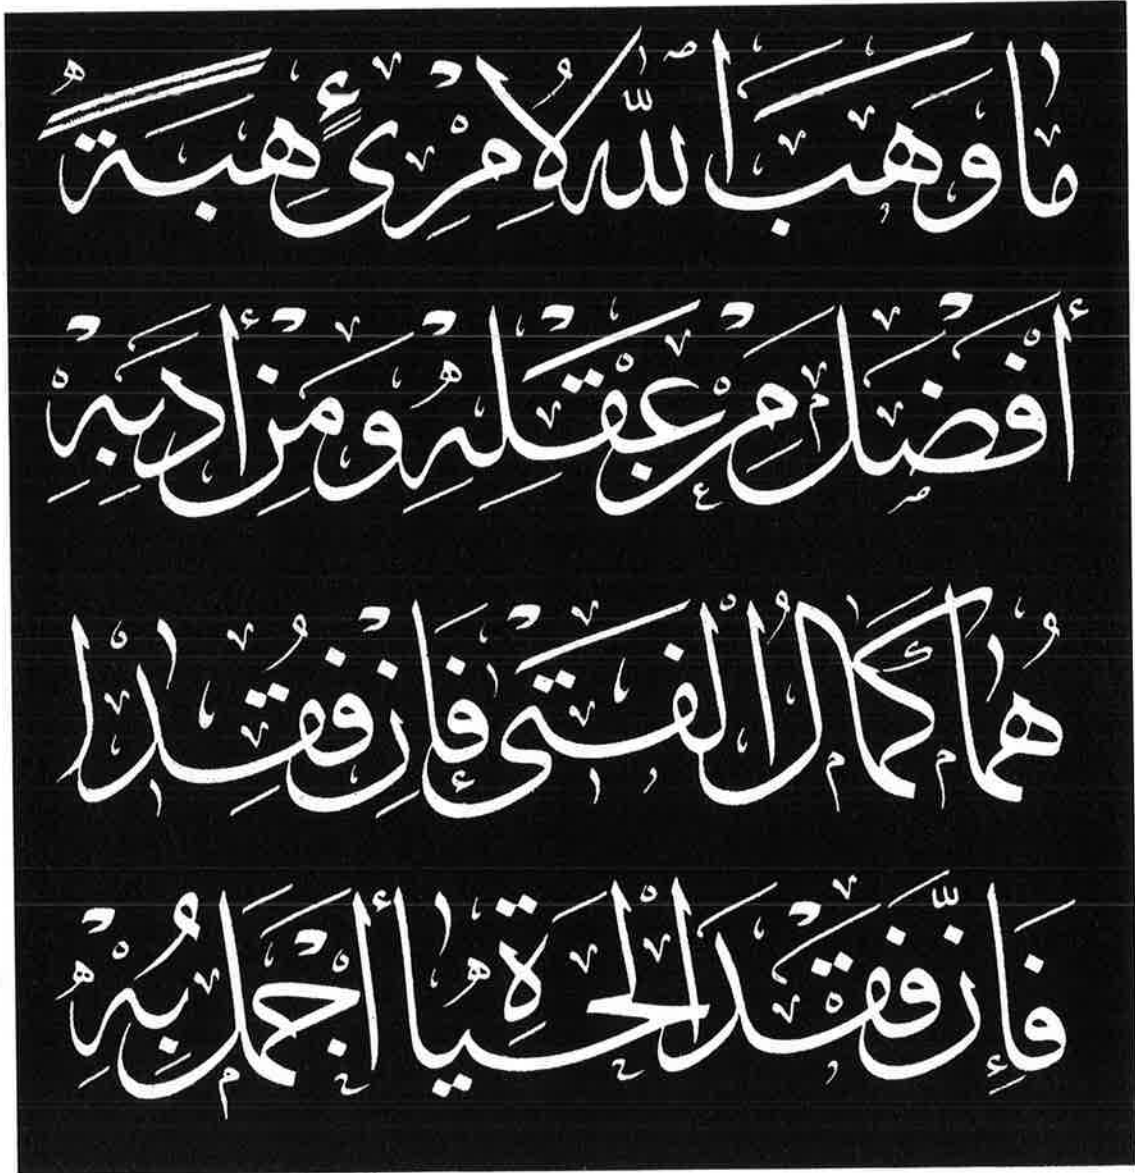 مَا وَهَبَ اللّٰهُ لِامْرِئٍ هِبَةً
أَفْضَلَ مِنْ عَقْلِهِ وَمِنْ أَدَبِهْ
هُمَا كَمَالُ الْفَتَى فَإِنْ فُقِدَا
فَإِنَّ فَقْدَ الْحَيَاةِ أَجْمَلُ بِهْ